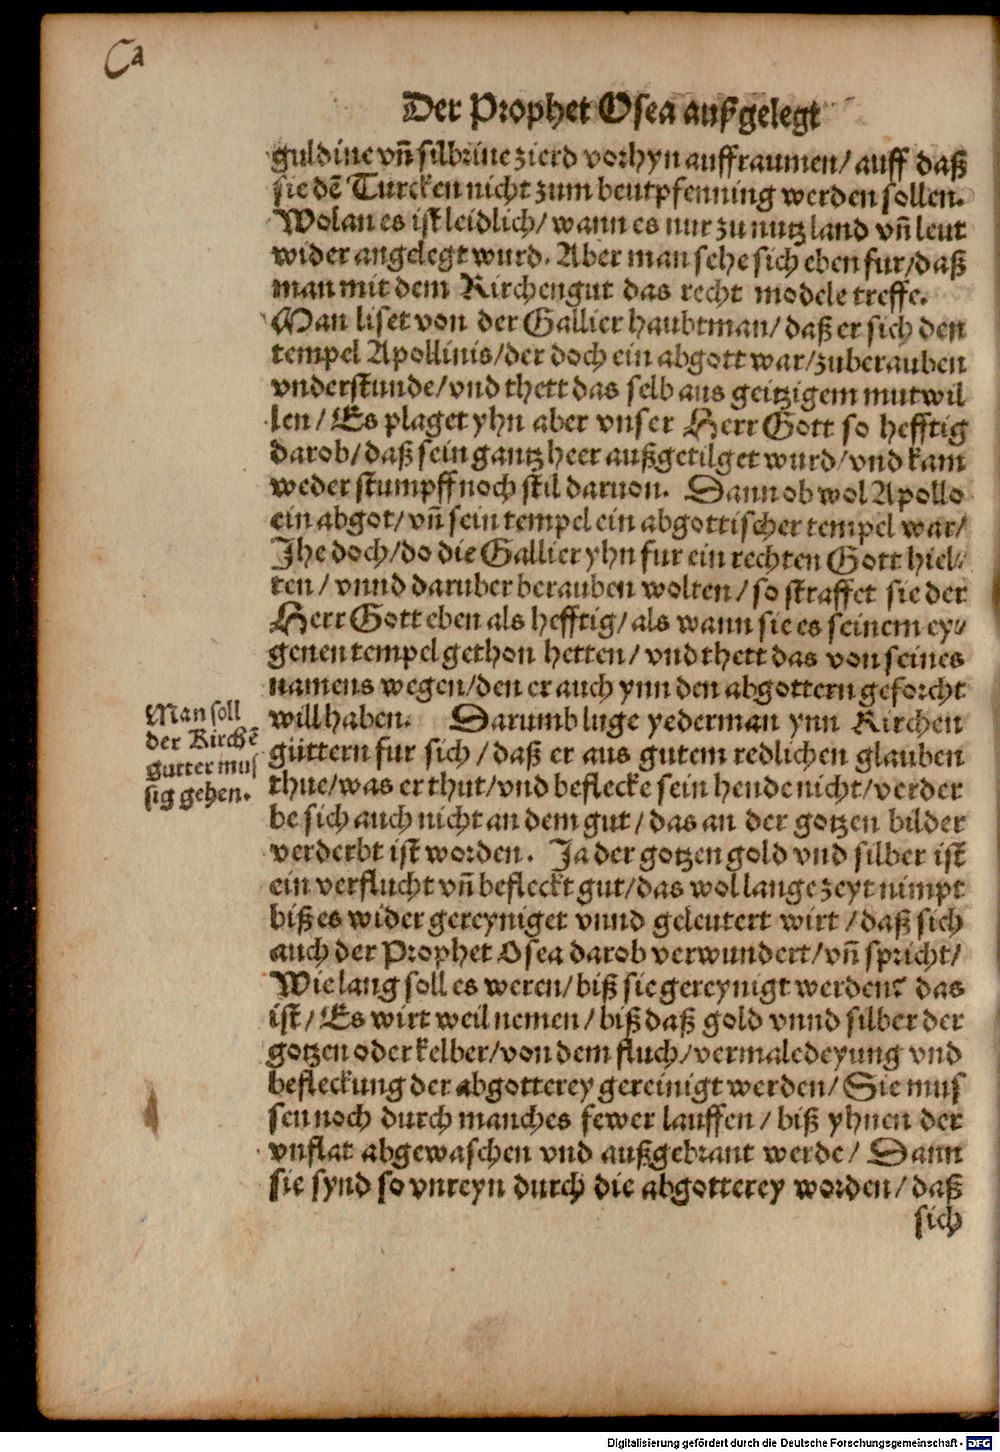 Ca
Der Prophet Osea außgelegt
guldine vñ silbrine zierd vorhyn auffraumen/ auff daß
sie dẽ Turcken nicht zum beutpfenning werden sollen.
Wolan es ist leidlich/ wann es nur zu nutz land vñ leut
wider angelegt wurd. Aber man sehe sich eben fur/daß
man mit dem Kirchengut das recht modele treffe.
Man liset von der Gallier haubtman/ daß er sich den
tempel Apollinis/der doch ein abgott war/zuberauben
vnderstunde/vnd thett das selb aus geitzigem mutwil
len/ Es plaget yhn aber vnser Herr Gott so hefftig
darob/daß sein gantz heer außgetilget wurd/vnd kam
weder stumpff noch stil daruon. Dann ob wol Apollo
ein abgot/vñ sein tempel ein abgottischer tempel war/
Jhe doch/do die Gallier yhn fur ein rechten Gott hiel⸗
ten/ vnnd daruber berauben wolten/ so straffet sie der
Herr Gott eben als hefftig/als wann sie es seinem ey⸗
genen tempel gethon hetten/ vnd thett das von seines
namens wegen/den er auch ynn den abgottern geforcht
will haben. Darumb luge yederman ynn Kirchen
güttern fur sich/daß er aus gutem redlichen glauben
thue/was er thut/vnd beflecke sein hende nicht/verder
be sich auch nicht an dem gut/das an der gotzen bilder
verderbt ist worden. Ja der gotzen gold vnd silber ist
ein verflucht vñ befleckt gut/das wol lange zeyt nimpt
biß es wider gereyniget vnnd geleutert wirt/daß sich
auch der Prophet Osea darob verwundert/vñ spricht/
Wie lang soll es weren/biß sie gereynigt werden? das
ist/ Es wirt weil nemen/biß daß gold vnnd silber der
gotzen oder kelber/von dem fluch/vermaledeyung vnd
befleckung der abgotterey gereinigt werden/Sie mus
sen noch durch manches fewer lauffen/ biß yhnen der
vnflat abgewaschen vnd außgebrant werde/ Dann
sie synd so vnreyn durch die abgotterey worden/daß
sich
Man soll
der Kirchẽ
gutter mus
sig gehen.
Digitalisierung gefördert durch die Deutsche Forschungsgemeinschaft - DFG